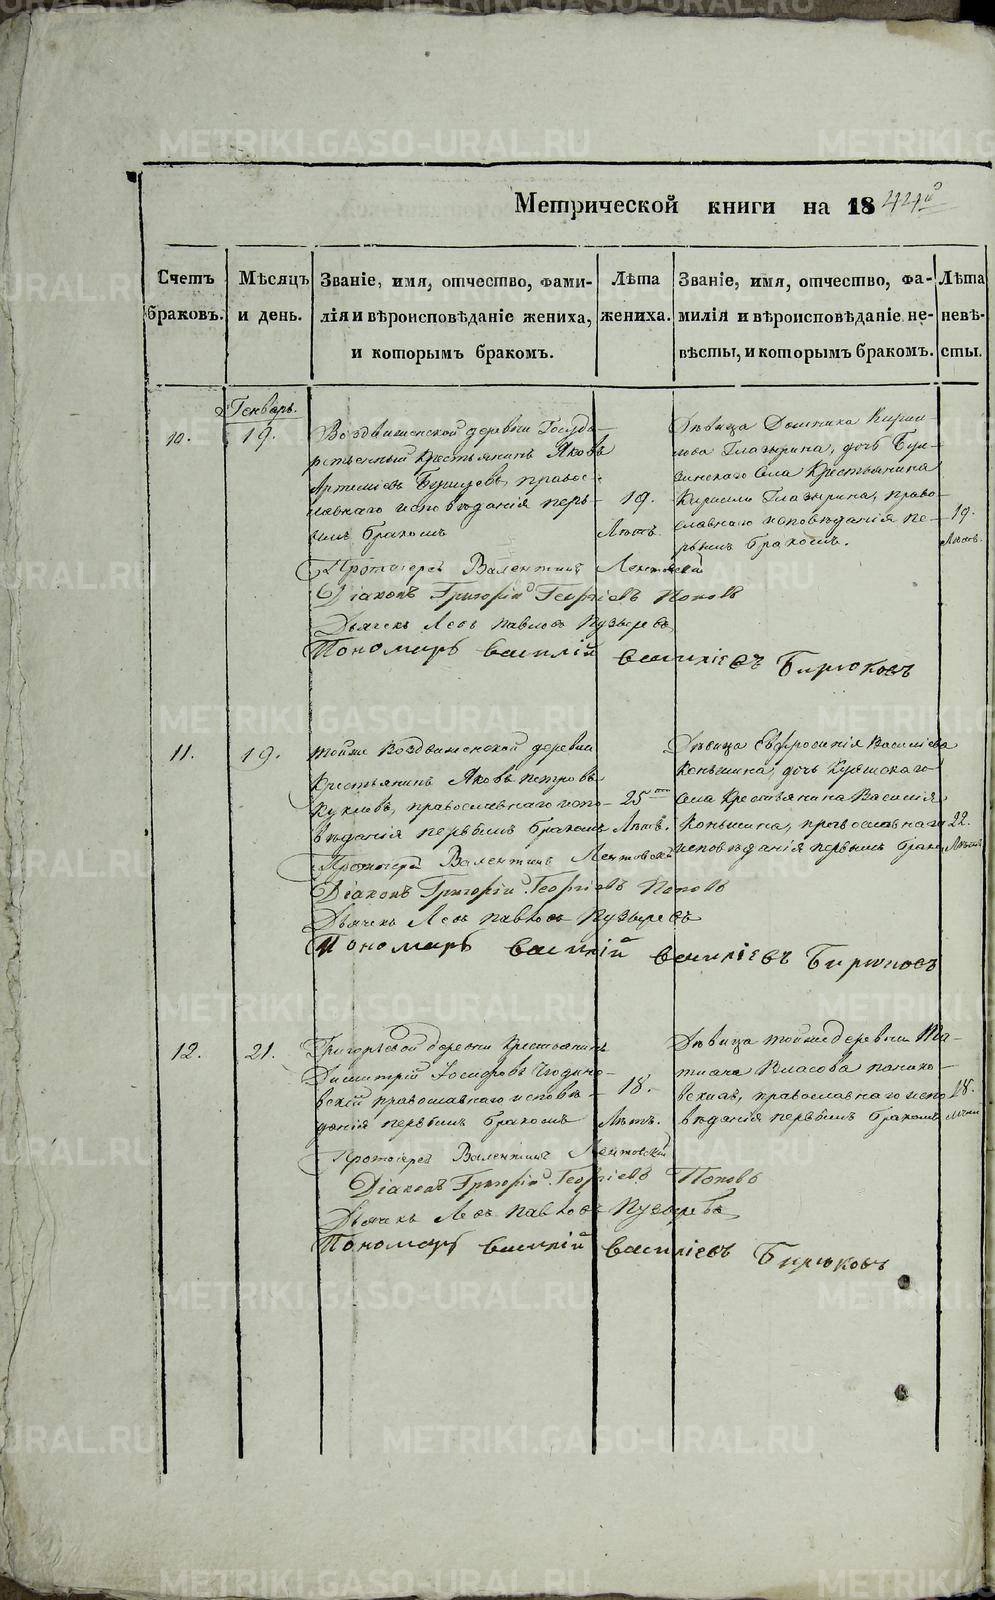 METRIKI.GASO-URAL.RU
Метрической книги на 1844й
Счетъ браковъ.
Мѣсяцъ и день.
Званіе, имя, отчество, фами-
лія и вѣроисповѣданіе жениха,
и которымъ бракомъ.
Лѣта
жениха.
Званіе, имя, отчество, фа-
милія и вѣроисповѣданіе не-
вѣсты, и которымъ бракомъ.
Лѣта
невѣ-
сты.
Генварь.
10.
19.
Воздвиженской деревни Госуда-
рственный Крестьянинъ Яковъ
Артеміевъ правос-
лавнаго исповѣданія пер-
вымъ бракомъ
19.
Лѣтъ.
Дѣвица Домника Кирил-
лова Глазырина, дочь Бул-
зинскаго Села Крестьянина
Кирилла Глазырина, право-
славнаго исповѣданія пе-
рвымъ бракомъ.
19.
Лѣтъ.
Протоіерей Валентинъ Лентовскій
Діаконъ Григорій Георгіевъ Поповъ
Дьячекъ Левъ Павловъ Пузыревъ
Пономарь Василій Василіевъ Бирюковъ
11.
19.
тойже Воздвиженской деревни
Крестьянинъ Яковъ Петровъ
Куклевъ, православнаго испо-
вѣданія первымъ бракомъ
25
Лѣтъ.
Дѣвица Евфросинія Василіева
Коньшина, дочь
Села Крестьянина Василія
Коньшина, православнаго
исповѣданія первымъ брако
22.
Лѣтъ
Протоіерей Валентинъ Лентовскій
Діаконъ Григорій Георгіевъ Поповъ
Дьячекъ Левъ Павловъ Пузыревъ
Пономарь Василій Василіевъ Бирюковъ
12.
21.
Григорьевой деревни Крестьянинъ
Димитрій Іосифовъ Чюдино-
вскій православнаго исповѣ-
данія первымъ бракомъ
18.
Лѣтъ.
Дѣвица тойже деревни Та-
тиана Власова
православнаго испо
вѣданія первымъ бракомъ
18.
Протоіерей Валентинъ Лентовскій
Діаконъ Григорій Георгіевъ Поповъ
Дьячекъ Левъ Павловъ Пузыревъ
Пономарь Василій Василіевъ Бирюковъ